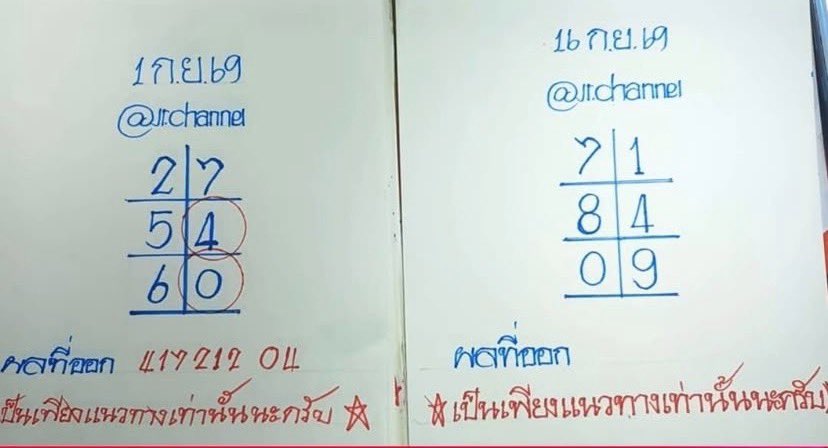 1 ก.ย.69
@jr.channel
2 7
5 4
6 0
ผลที่ออก 417 212 04
เป็นเพียงแนวทางเท่านั้นนะครับ ☆
16 ก.ย.69
@jr.channel
7 1
8 4
0 9
ผลที่ออก
☆ เป็นเพียงแนวทางเท่านั้นนะครับ